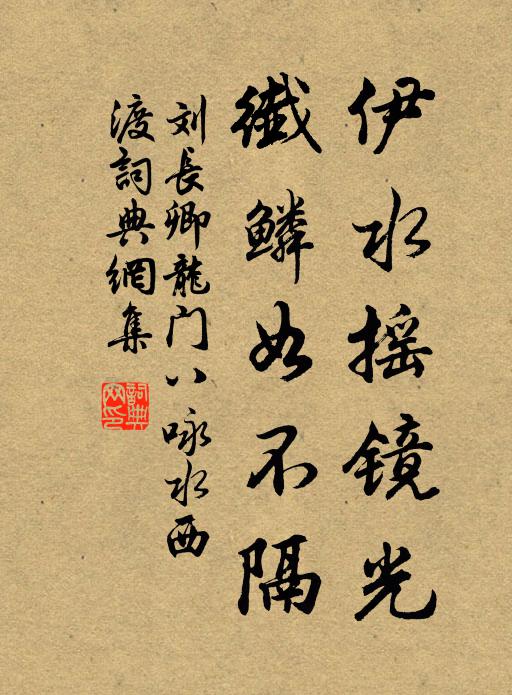 伊水摇镜光
纖鳞如不隔
刘長卿龍门八咏水西
渡詞典網集
詞典
网印